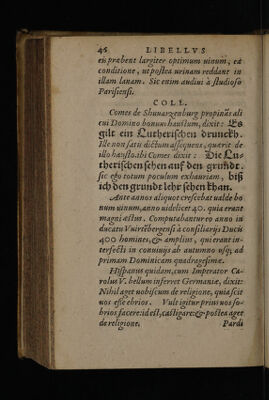 46 LIBELLVS
eis præbent largiter optimum uinum, ea
conditione, ut postea urinam reddant in
illam lanam. Sic enim audiui à studioso
Parisiensi.
COLL.
Comes de Shuuarzenburg propinās ali
cui Domino bonum haustum, dixit: Es
gilt ein Lutherischen drunckh.
Ille non satis dictum assequens, quærit de
illo hausto. ibi Comes dixit: Die Lu-
therischen sehen auf den grundt.
sic ego totum poculum exhauriam, biß
ich den grundt lehr sehen khan.
Ante annos aliquot crescebat ualde bo
num uinum, anno uidelicet 40. quia erant
magni æstus. Computabantur eo anno in
ducatu Vuirtēbergensi à consiliarijs Ducis
400 homines, & amplius, qui erant in-
terfecti in conuiuijs ab autumno usq; ad
primam Dominicam quadragesimæ.
Hispanus quidam, cum Imperator Ca-
rolus V. bellum inferret Germaniæ, dixit:
Nihil aget nobiscum de religione, quia scit
nos esse ebrios. Vult igitur prius nos so-
brios facere: id est, castigare: & postea aget
de religione.
Pardi